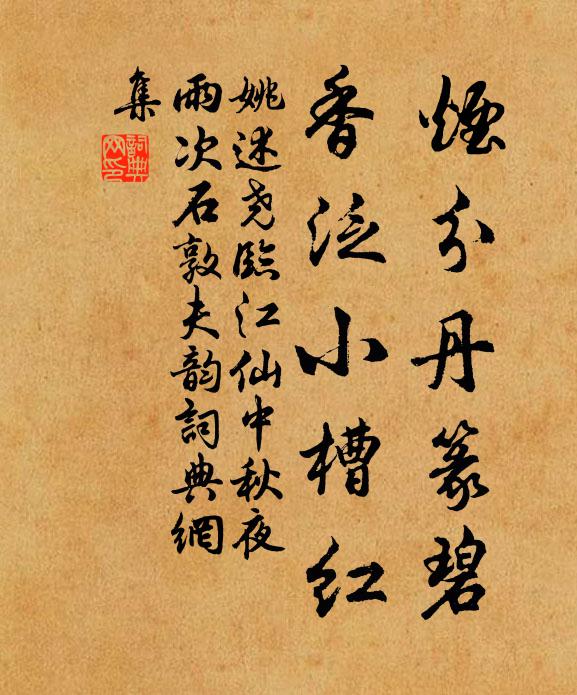 煙分丹篆碧
香泛小槽紅
姚述堯臨江仙中秋夜
雨次石敦夫韵詞典網
集
詞典網印